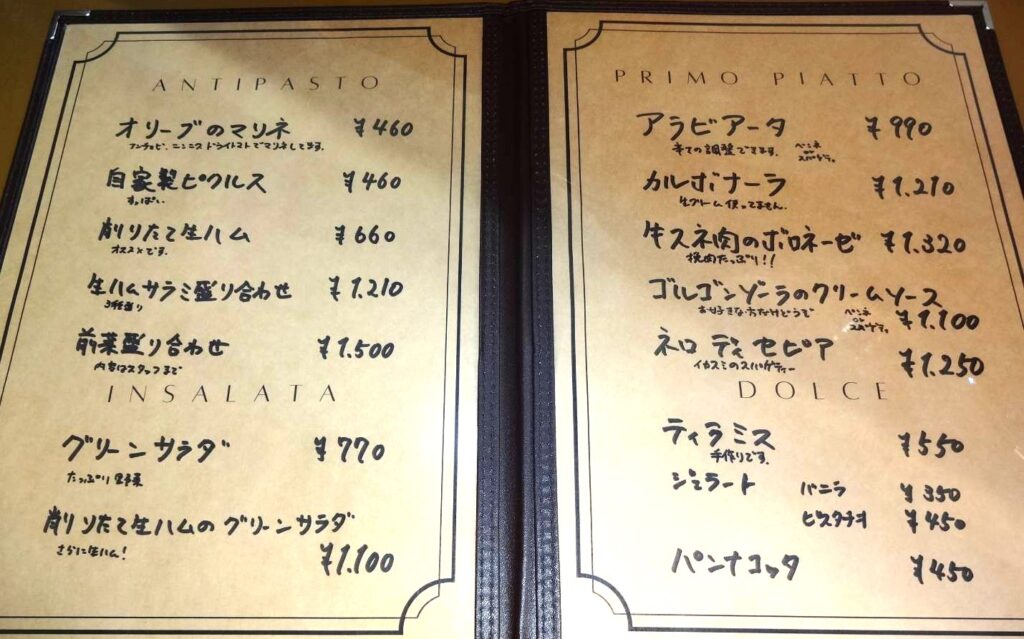 ANTIPASTO
オリーブのマリネ ¥460
アンチョビ、ニンニク ドライトマトでマリネしてます。
自家製ピクルス ¥460
すっぱい。
削りたて生ハム ¥660
オススメです。
生ハムサラミ盛り合わせ ¥1.210
3種盛り
前菜盛り合わせ ¥1.500
内容はスタッフまで
INSALATA
グリーンサラダ ¥770
たっぷり野菜
削りたて生ハムのグリーンサラダ
さらに生ハム! ¥1.100
PRIMO PIATTO
アラビアータ ¥990
辛さの調整できます。 ペンネ
or
スパゲティ。
カルボナーラ ¥1.210
生クリーム使ってません。
牛スネ肉のボロネーゼ ¥1.320
挽肉たっぷり!!
ゴルゴンゾーラのクリームソース
お好きな方だけどうぞ ペンネ
or
スパゲティ。 ¥1.100
ネロ ディ セピア ¥1.250
イカスミのスパゲティー
DOLCE
ティラミス ¥550
手作りです。
ジェラート バニラ ¥350
ピスタチオ ¥450
パンナコッタ ¥450